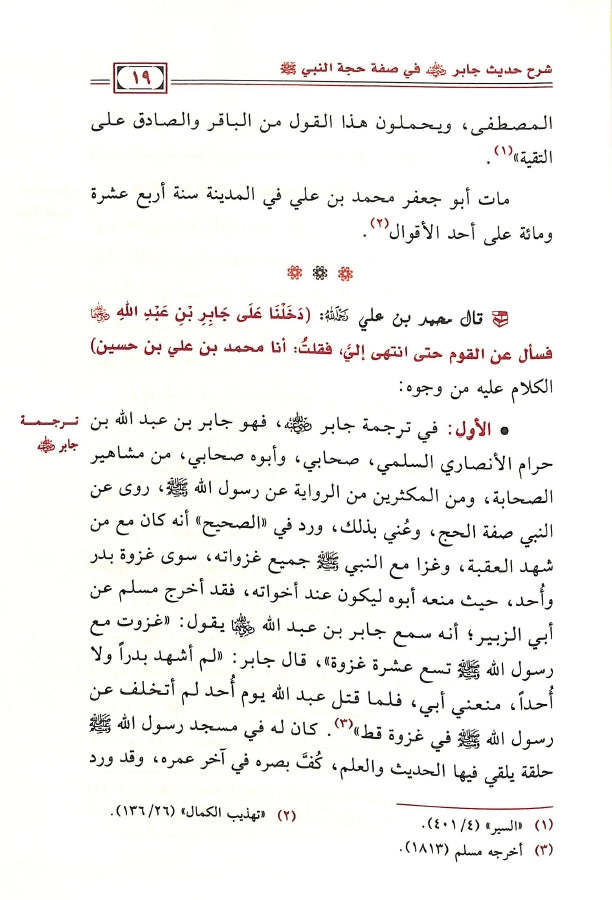 شرح حديث جابر ﵁ في صفة حجة النبي ﷺ
١٩
المصطفى، ويحملون هذا القول من الباقر والصادق على
التقية»(١).
مات أبو جعفر محمد بن علي في المدينة سنة أربع عشرة
ومائة على أحد الأقوال(٢).
قال محمد بن علي ﵀: (دَخَلْنَا عَلَى جَابِرِ بْنِ عَبْدِ اللهِ ﵄
فسأل عن القوم حتى انتهى إليَّ، فقلتُ: أنا محمد بن علي بن حسين)
الكلام عليه من وجوه:
• الأول: في ترجمة جابر ﵁، فهو جابر بن عبد الله بن
ترجمة
جابر ﵁
حرام الأنصاري السلمي، صحابي، وأبوه صحابي، من مشاهير
الصحابة، ومن المكثرين من الرواية عن رسول الله ﷺ، روى عن
النبي صفة الحج، وعُني بذلك، ورد في «الصحيح» أنه كان مع من
شهد العقبة، وغزا مع النبي ﷺ جميع غزواته، سوى غزوة بدر
وأُحد، حيث منعه أبوه ليكون عند أخواته، فقد أخرج مسلم عن
أبي الزبير؛ أنه سمع جابر بن عبد الله ﵄ يقول: «غزوت مع
رسول الله ﷺ تسع عشرة غزوة»، قال جابر: «لم أشهد بدراً ولا
أُحداً، منعني أبي، فلما قتل عبد الله يوم أُحد لم أتخلف عن
رسول الله ﷺ في غزوة قط»(٣). كان له في مسجد رسول الله ﷺ
حلقة يلقي فيها الحديث والعلم، كُفَّ بصره في آخر عمره، وقد ورد
(١) «السير» (٤٠١/٤).
(٢) «تهذيب الكمال» (١٣٦/٢٦).
(٣) أخرجه مسلم (١٨١٣).